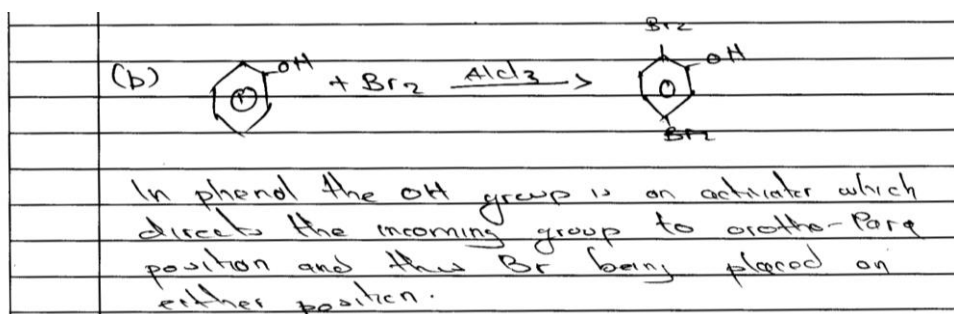 Br2
(b) OH + Br2 AlCl3 OH
Br2
In phenol the OH group is an activater which
directs the incoming group to orotho-Para
position and thus Br being placed on
either position.